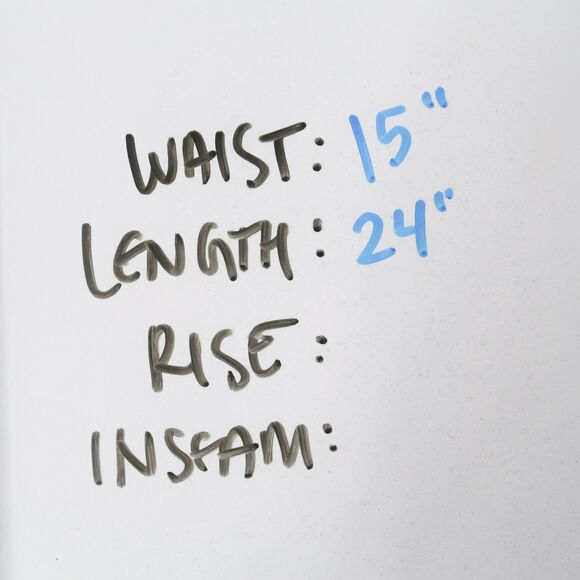 WAIST: 15"
LENGTH: 24"
RISE:
INSEAM: